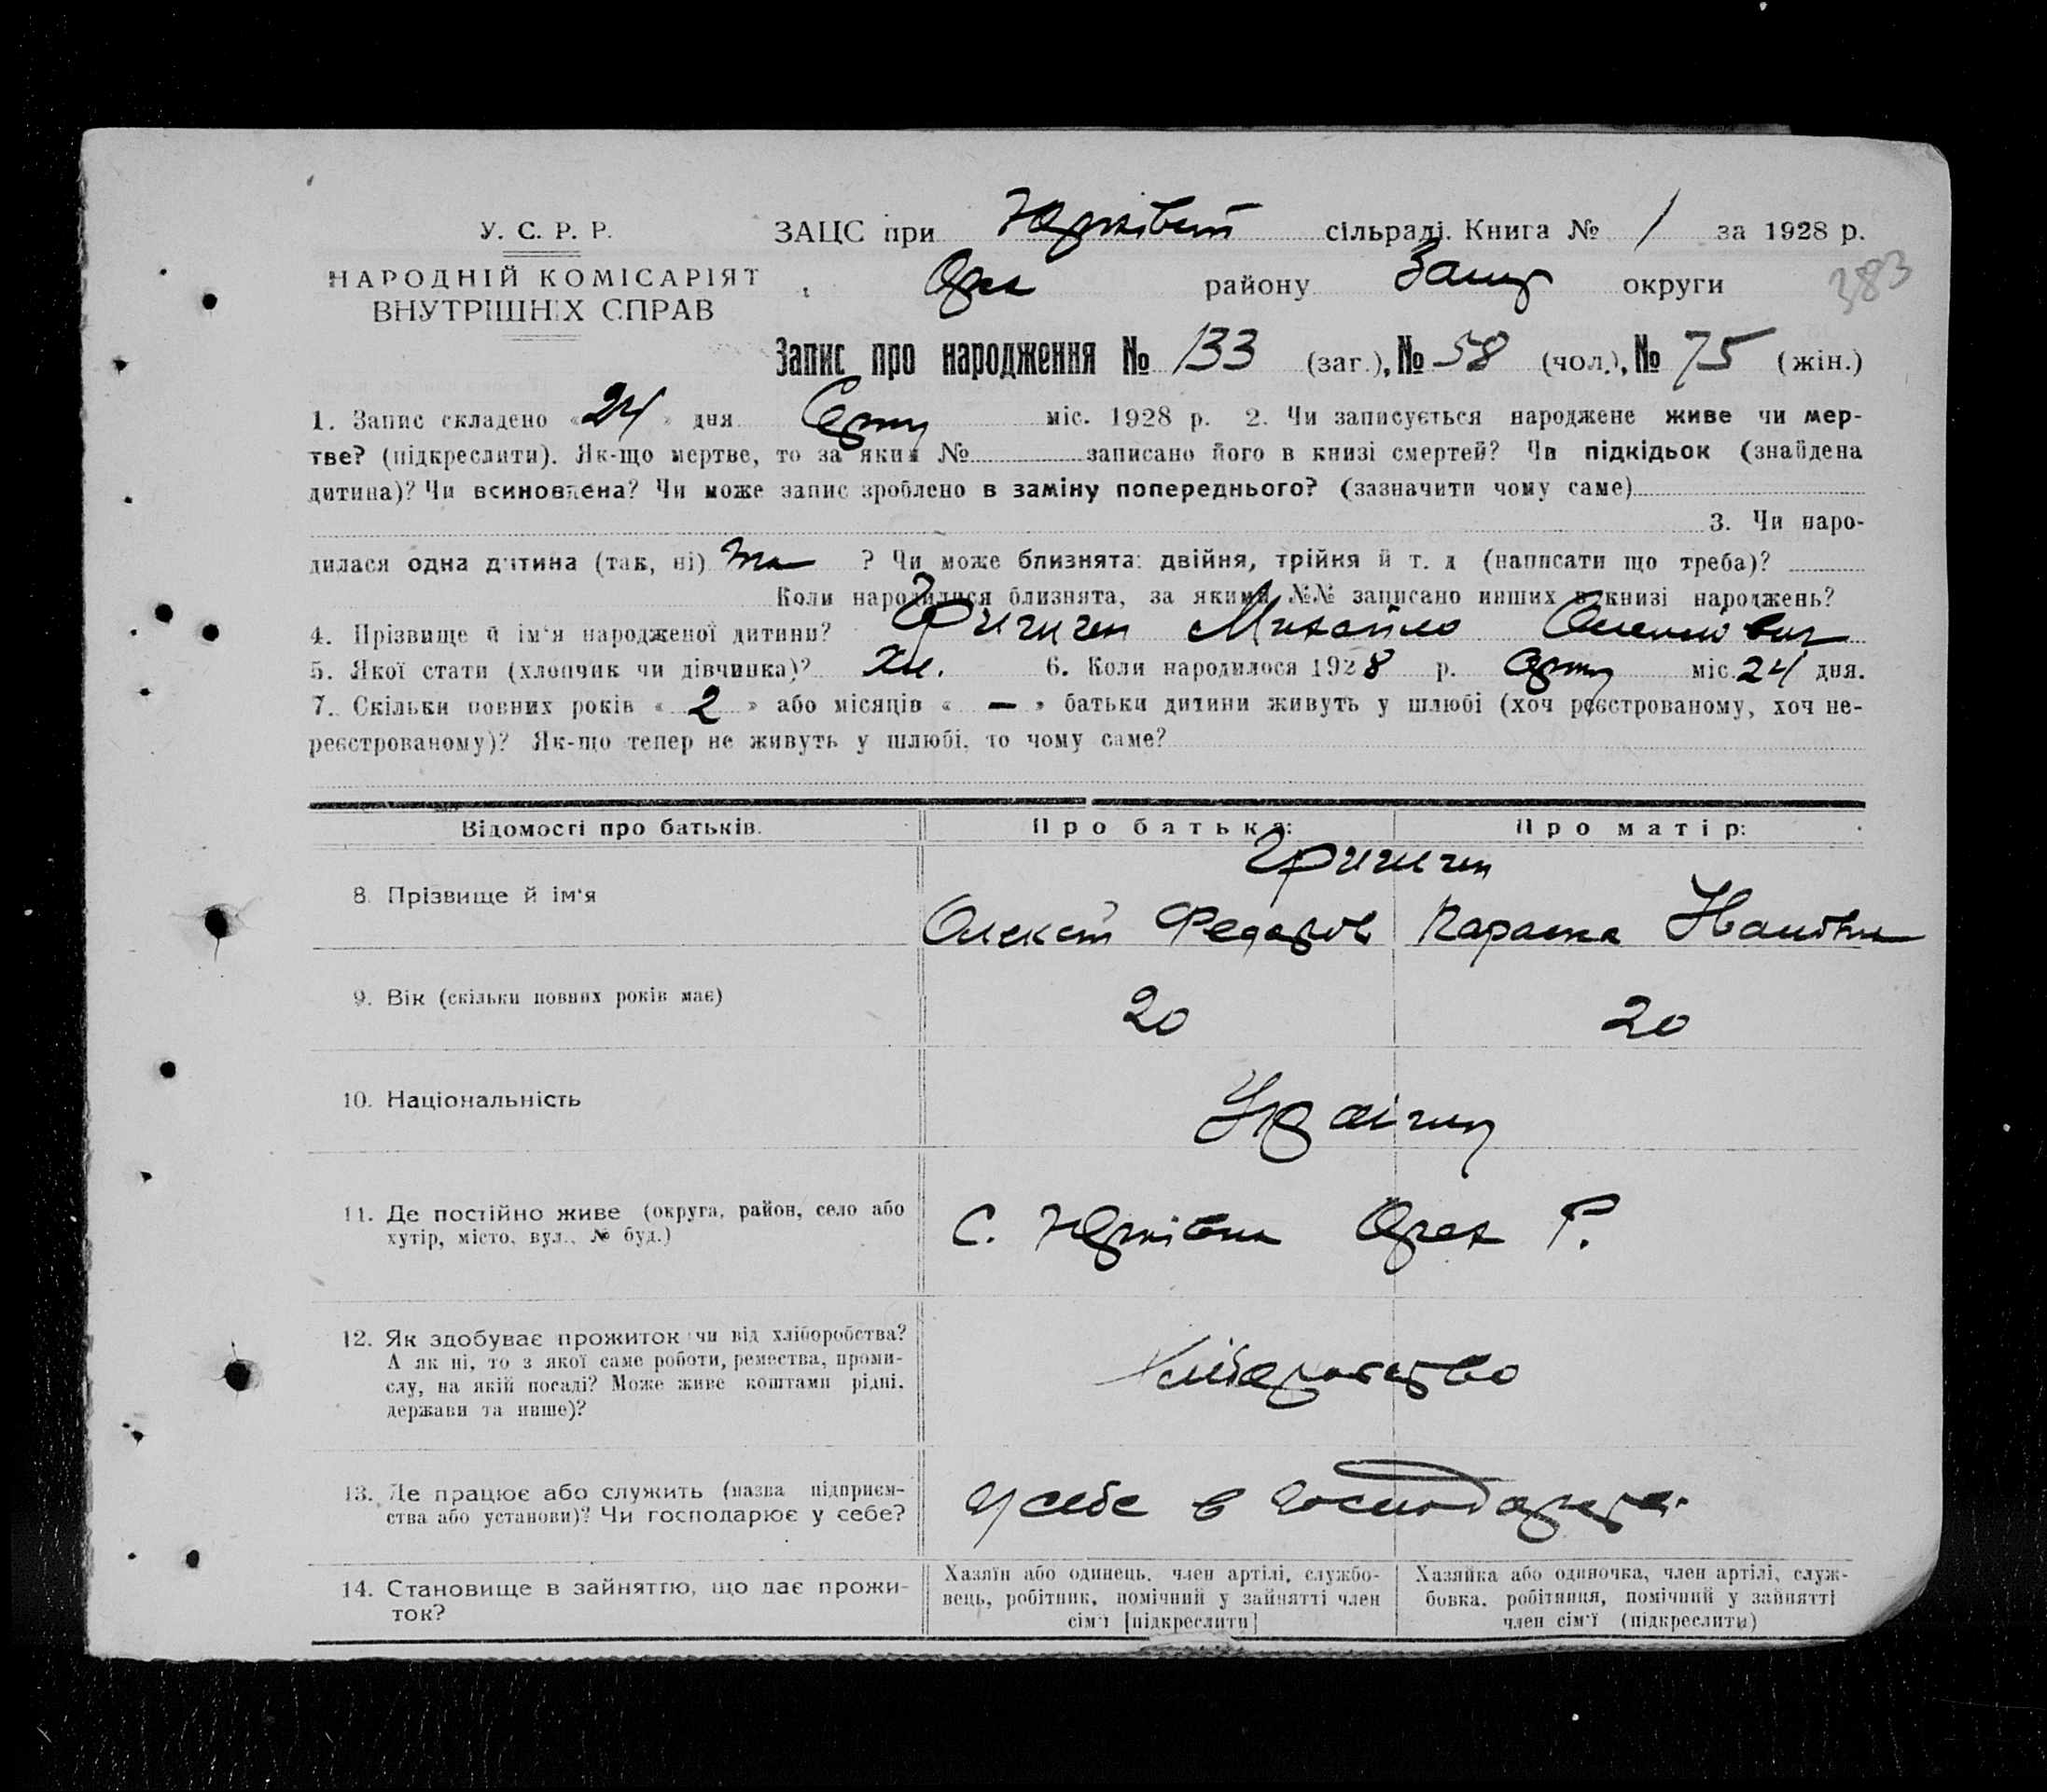 У. С. Р. Р.
НАРОДНІЙ КОМІСАРІЯТ
ВНУТРІШНІХ СПРАВ
ЗАЦС при Юрківській сільраді. Книга № 1 за 1928 р.
Оріх району Запор округи
383
Запис про народження № 133 (заг.), № 58 (чол.), № 75 (жін.)
1. Запис складено «24» дня Серпн міс. 1928 р. 2. Чи записується народжене живе чи мер-
тве? (підкреслити). Як-що мертве, то за яким № записано його в книзі смертей? Чи підкідьок (знайдена
дитина)? Чи всиновлена? Чи може запис зроблено в заміну попереднього? (зазначити чому саме)
3. Чи наро-
дилася одна дитина (так, ні) так ? Чи може близнята: двійня, трійня й т. д (написати що треба)?
Коли народилися близнята, за якими №№ записано инших в книзі народжень?
4. Прізвище й ім'я народженої дитини? Михайло
5. Якої стати (хлопчик чи дівчинка)? Хл. 6. Коли народилося 1928 р. Серпн міс. 24 дня.
7. Скільки повних років «2» або місяців «—» батьки дитини живуть у шлюбі (хоч реєстрованому, хоч не-
реєстрованому)? Як-що тепер не живуть у шлюбі, то чому саме?
Відомості про батьків. Про батька: Про матір:
8. Прізвище й ім'я
Олексій Федоров Параска Іванівна
9. Вік (скільки повних років має) 20 20
10. Національність Українц
11. Де постійно живе (округа, район, село або
хутір, місто, вул., № буд.) С. Юрківка Оріх Р.
12. Як здобуває прожиток чи від хліборобства?
А як ні, то з якої саме роботи, ремества, проми-
слу, на якій посаді? Може живе коштами рідні,
держави та инше)? Хліборобство
13. Де працює або служить (назва підприєм-
ства або установи)? Чи господарює у себе? у себе в господарстві
14. Становище в зайняттю, що дає прожи-
ток?
Хазяїн або одинець, член артілі, службо-
вець, робітник, помічний у зайнятті член
сім'ї [підкреслити]
Хазяйка або одиночка, член артілі, служ-
бовка, робітниця, помічний у зайнятті
член сім'ї (підкреслити)